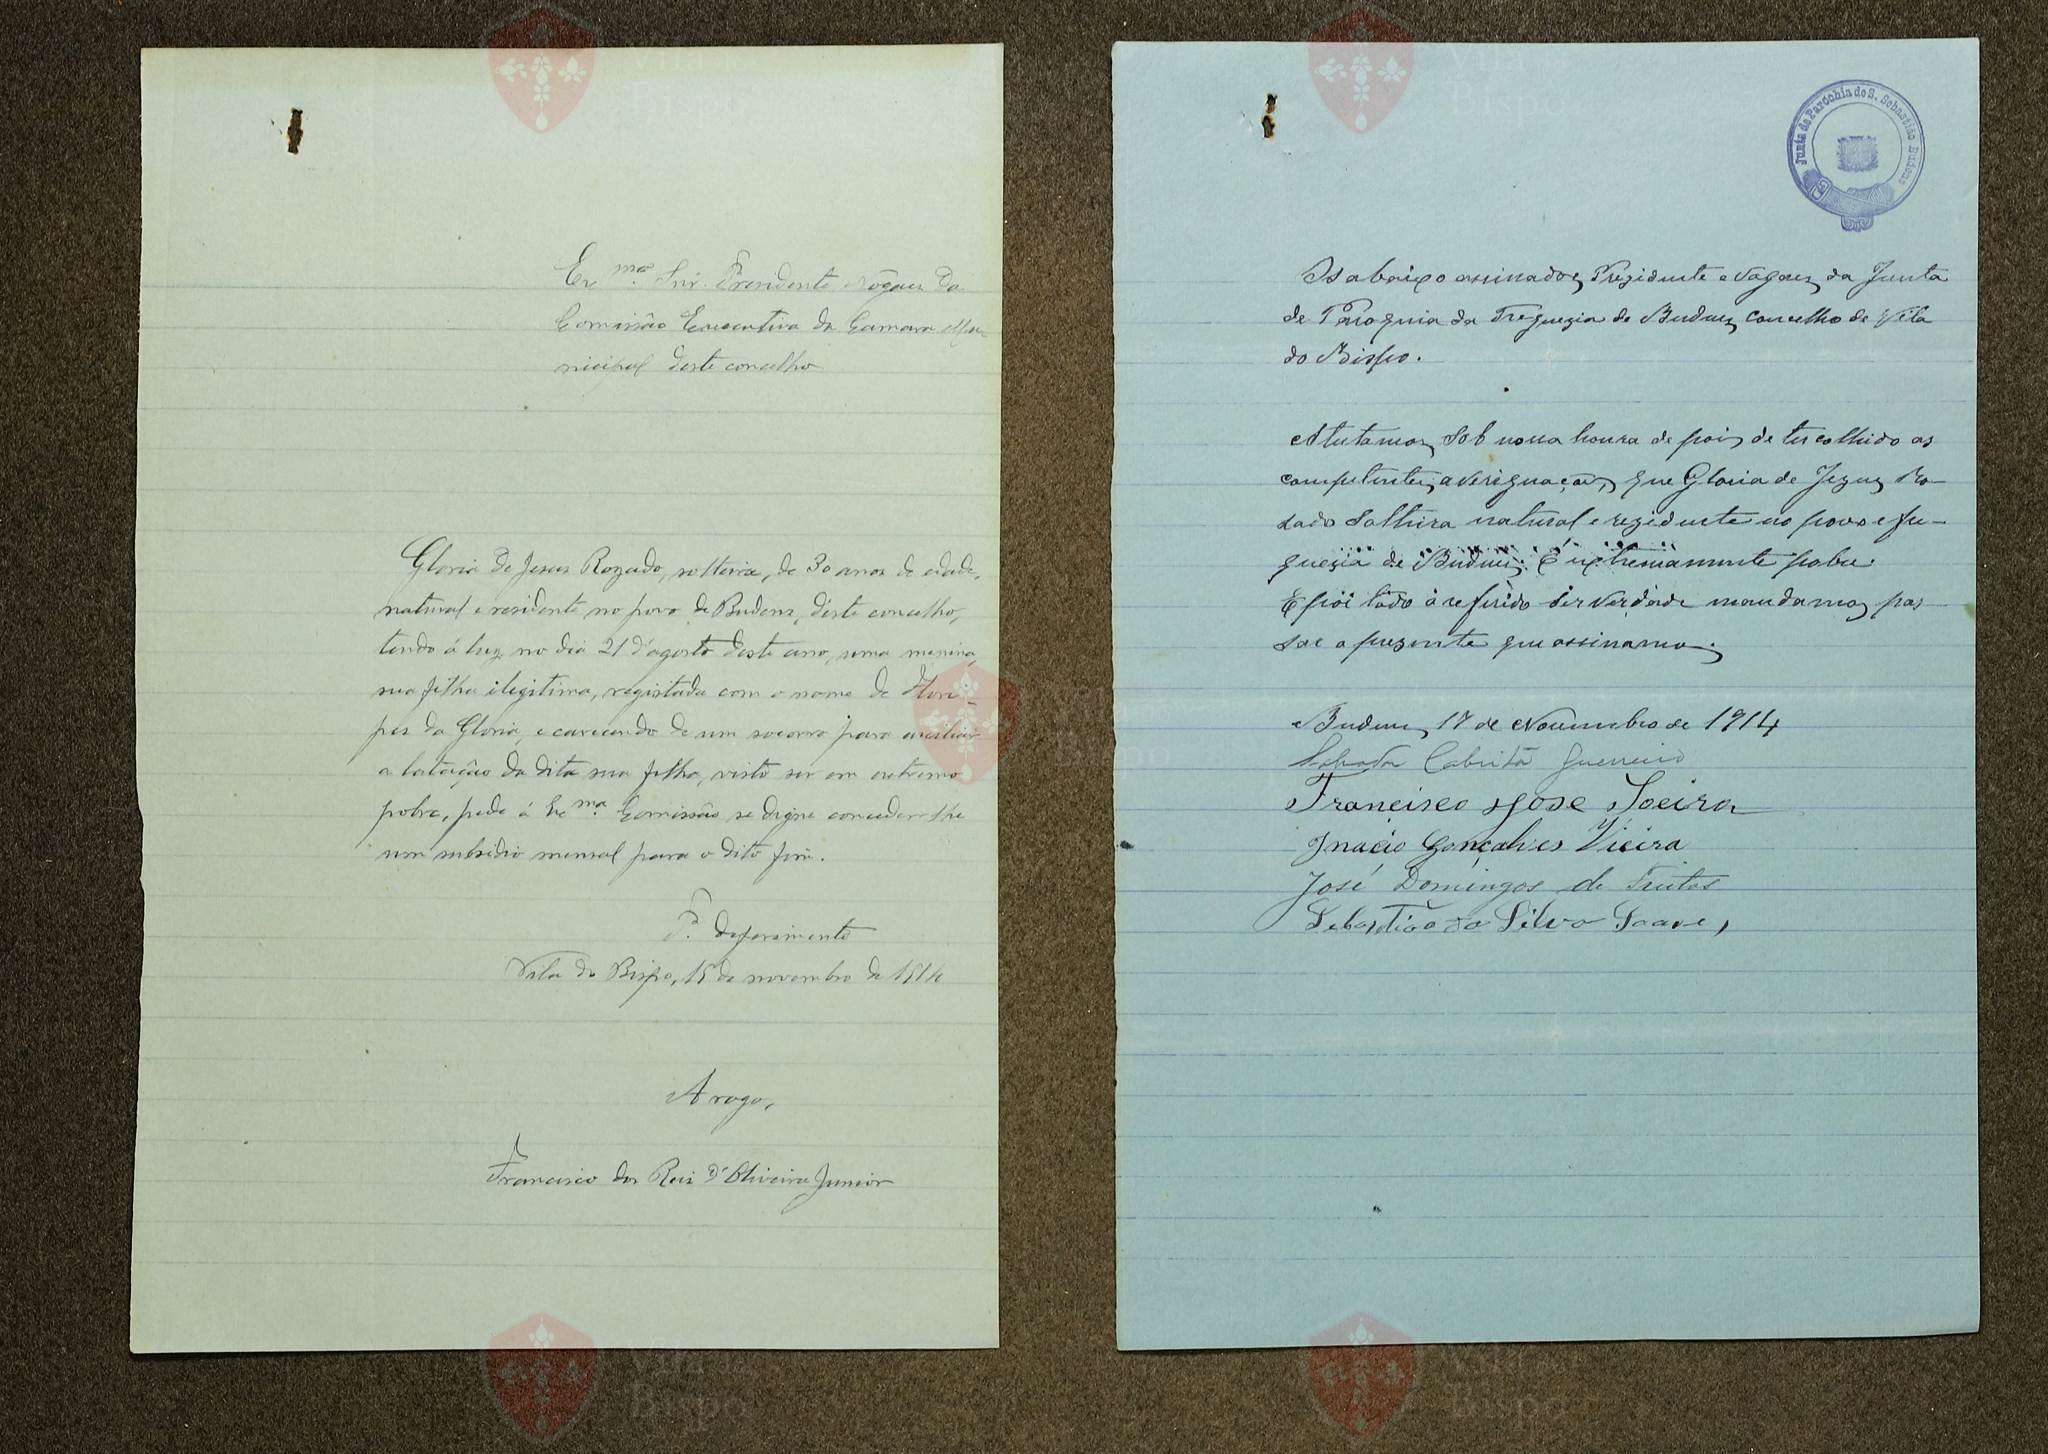 Ex.ma Snr. Presidente Vogaes da
Comissão Executiva da Camara Mu-
nicipal deste concelho
Gloria de Jesus Rozado, solteira, de 30 anos de edade,
natural e residente no povo de Budens, déste concelho,
tendo á luz, no dia 21 d'agosto deste ano, uma menina,
sua filha ilegitima, registada com o nome de Flori-
pes da Gloria, e carecendo de um socorro para auxiliar
a lactação da dita sua filha, visto ser em extremo
pobre, pede á Ex.ma Comissão se digne conceder-lhe
um subsidio mensal para o dito fim.
P. deferimento
Vila do Bispo, 15 de novembro de 1914
A rogo,
Francisco dos Reis d'Oliveira Junior
Junta de Parochia de S. Sebastião Budens
Os abaixo assinados, Prezidente e vogaes da Junta
de Paroquia da Freguezia de Budens, concelho de Vila
do Bispo.
Atestamos, sob nossa honra de pois de ter colhido as
competentes averiguações, que Gloria de Jezus Ro-
zado Solteira natural e rezidente no povo e fre-
guezia de Budens. É extremamente pobre.
E por todo o referido ser verdade mandamos pas
sar a prezente que assinamos.
Budens, 17 de Novembro de 1914
Cabrita Guerreiro
Francisco José Joeira
Inacio Gonçalves Vieira
José Domingos de Freitas
Sebastião da Silva
Vila do
Bispo
Vila do
Bispo
Vila do
Bispo
Vila do
Bispo
Vila do
Bispo